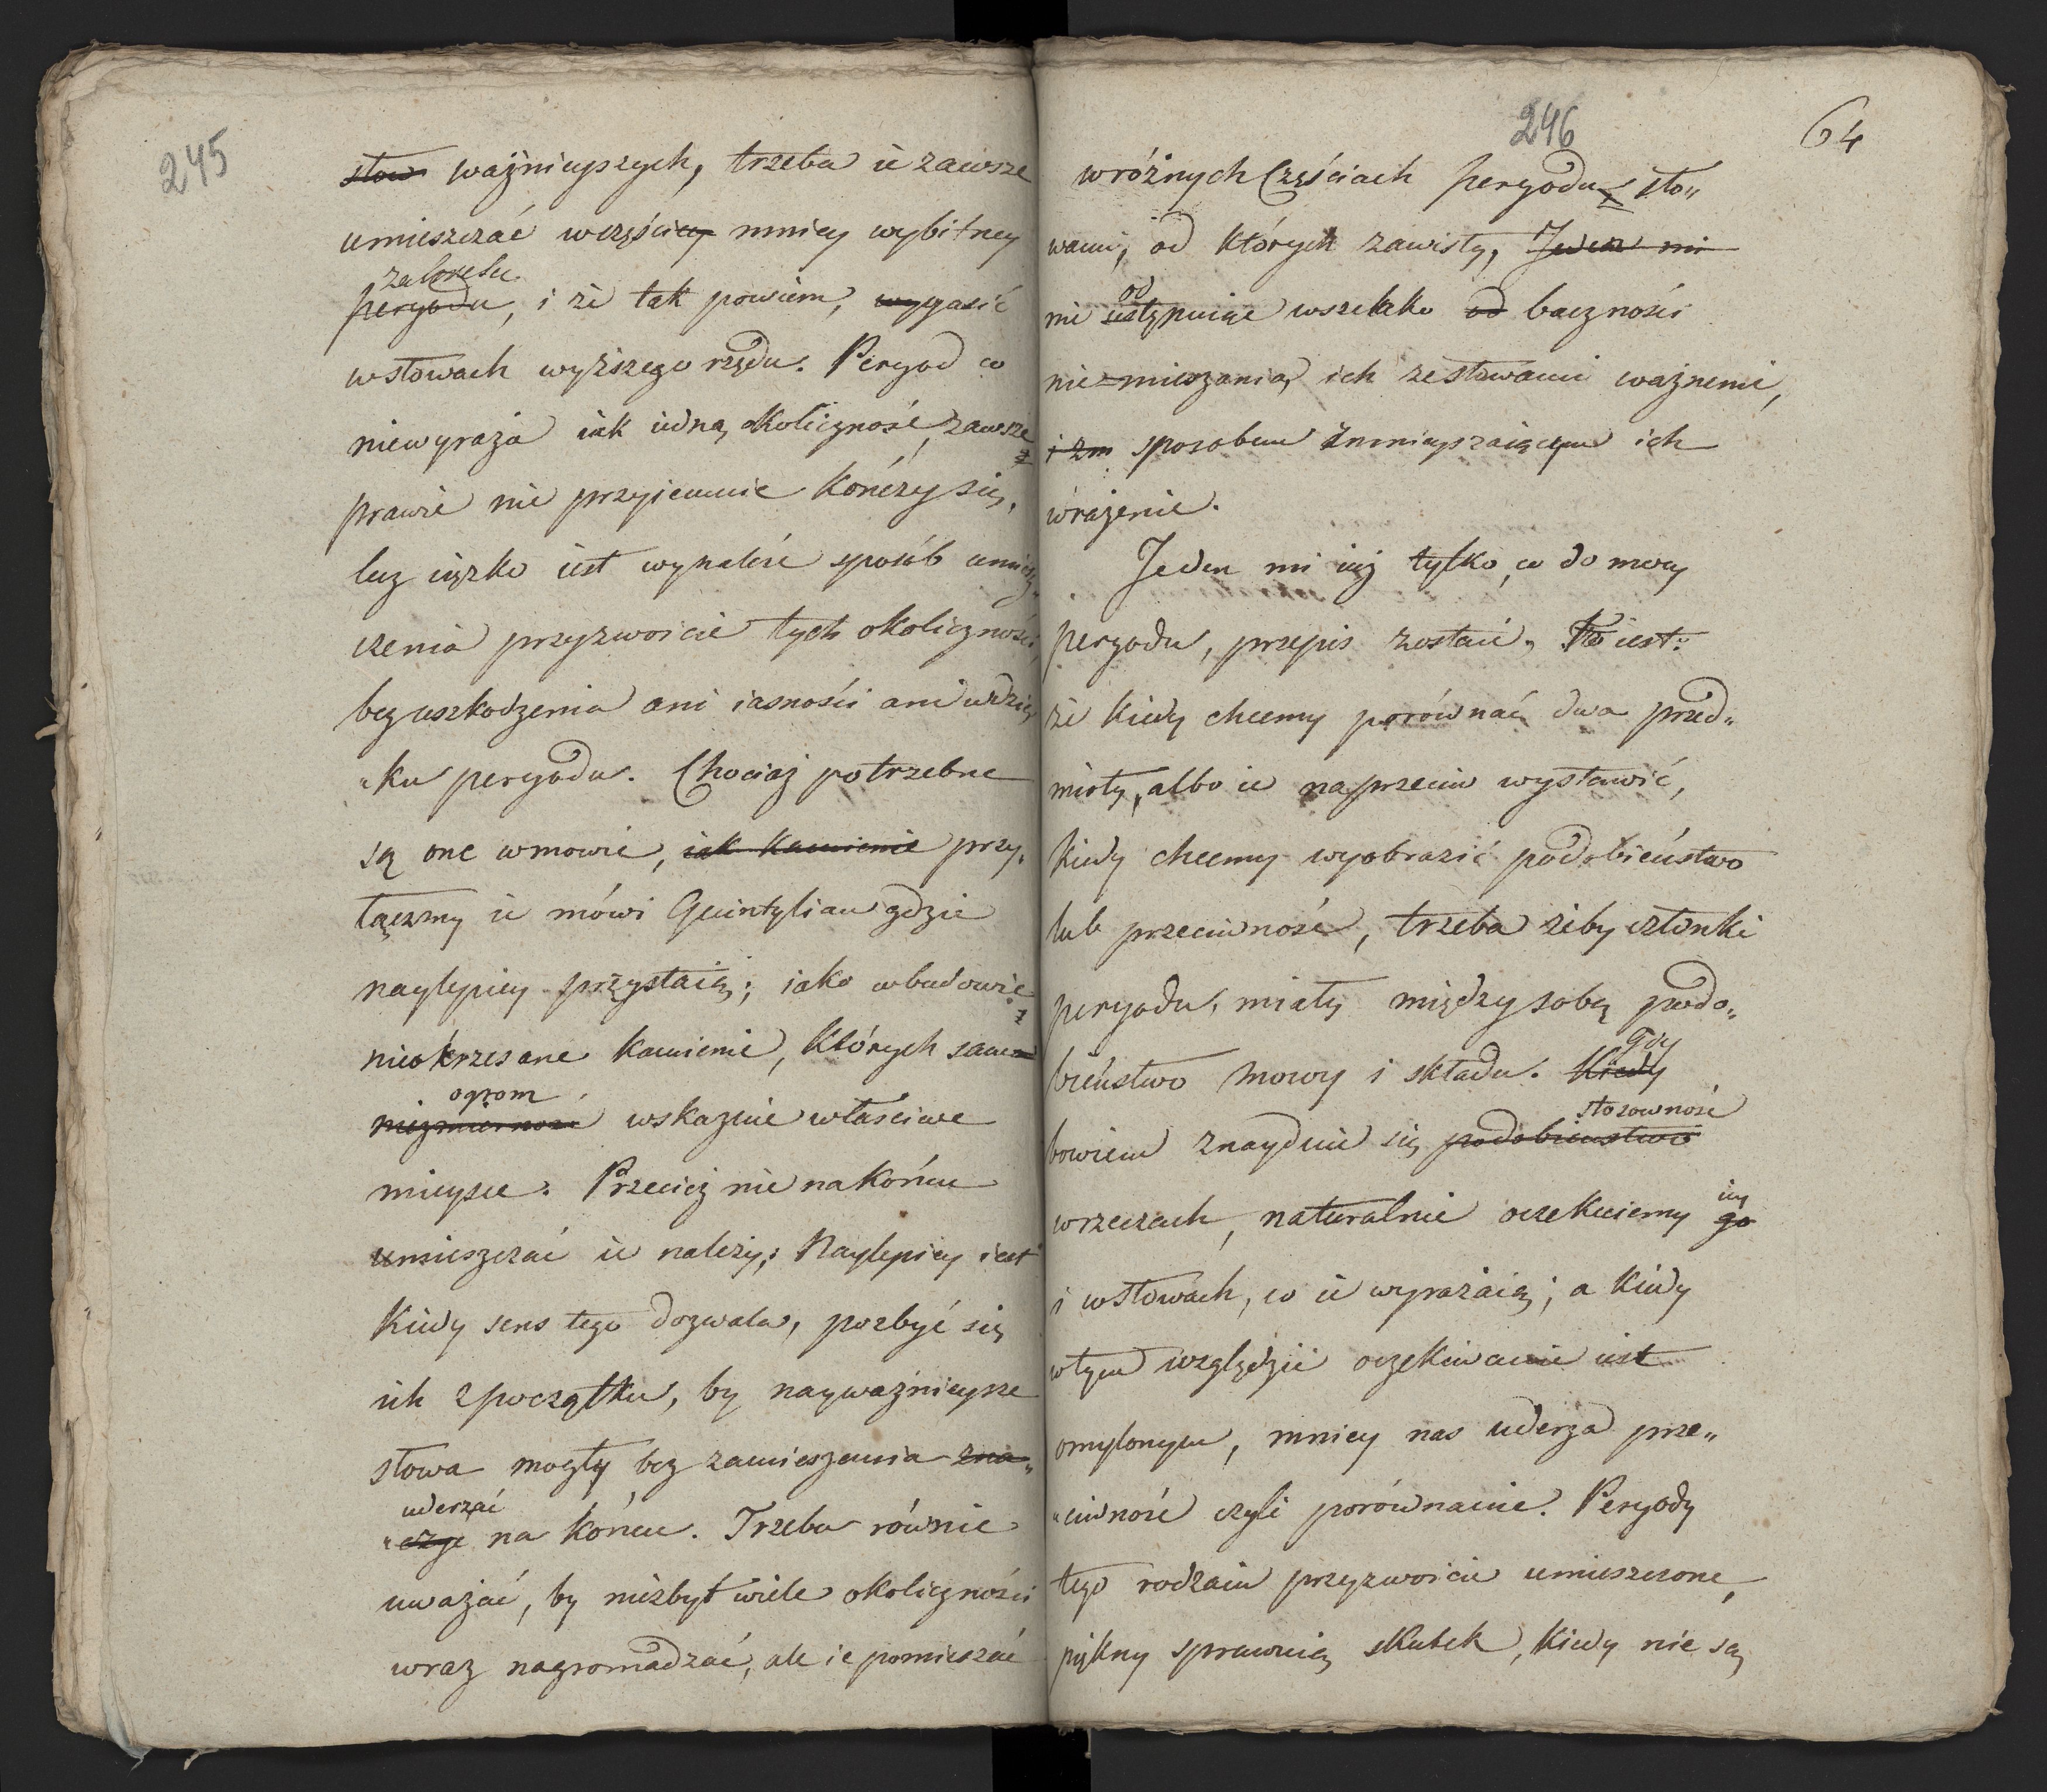 245
słow ważnieyszych, trzeba ie zawsze
umieszczać wczęściey mniey wybitney
zakresu
peryodu, i że tak powiem, wygasić
wsłowach wyższego rzędu. Peryod co
niewyraża iak iedną okoliczność, zawsze
prawie nie przyiemnie kończy się,
lecz ciężko iest wynaleść sposób umiesz
czenia przyzwoicie tych okoliczności,
bez uszkodzenia ani iasności ani wdzię
„ku peryodu. Chociaż potrzebne
są one wmowie, iak kamienie przy„
łączmy ie mówi Quintylian gdzie
naylepiey przystaią; iako wbudowie
nieokrzesane kamienie, których sama
ogrom
niezmierność wskazuie właściwe
mieysce. Przecież nie na końcu
umieszczać ie należy; Naylepiey iest
kiedy sens tego dozwala, pozbyć się
ich zpoczątku, by nayważnieysze
słowa mogły bez zamieszania zna„
uderzać
„czyć na końcu. Trzeba równie
uważać, by niezbyt wiele okoliczności
wraz nagromadzać, ale ie pomieszać
246
64
wróżnych Częściach peryodu ze sło„
wami, od których zawisły, Jeden ni
od
nie ustępuiąc wszelako od baczności
niezmieszania ich ze słowami ważnemi,
i zm sposobem zmnieyszaiącym ich
wrażenie.
Jeden mi iuż tylko, co do mocy
peryodu, przepis zostaie, To iest:
że kiedy chcemy porównać dwa przed„
mioty, albo ie naprzeciw wystawić,
kiedy chcemy wyobrazić podobieństwo
lub przeciwność, trzeba żeby członki
peryodu, miały między sobą podo„
Gdy
bieństwo mowy i składu. Kiedy
stosowność
bowiem znayduie się podobieństwo
iey
wrzeczach, naturalnie oczekuiemy go
i wsłowach, co ie wyrażaią; a kiedy
wtym względzie oczekiwanie iest
omylonym, mniey nas uderza prze„
„ciwność czyli porównanie. Peryody
tego rodzaiu przyzwoicie umieszczone,
piękny sprawuią skutek, kiedy nie są